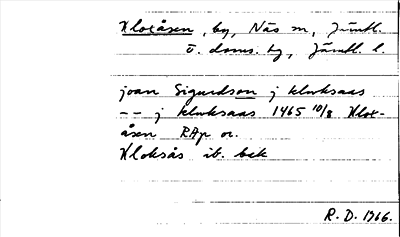 Kloxåsen, by, Näs sn, Jämtl.
ö. doms. tg, Jämtl. l.
joan Sigurdson j kluksaas
-- j kluksaas 1465 10/8 Klox-
åsen RAp or.
Kloksås ib. bek
R. D. 1966.